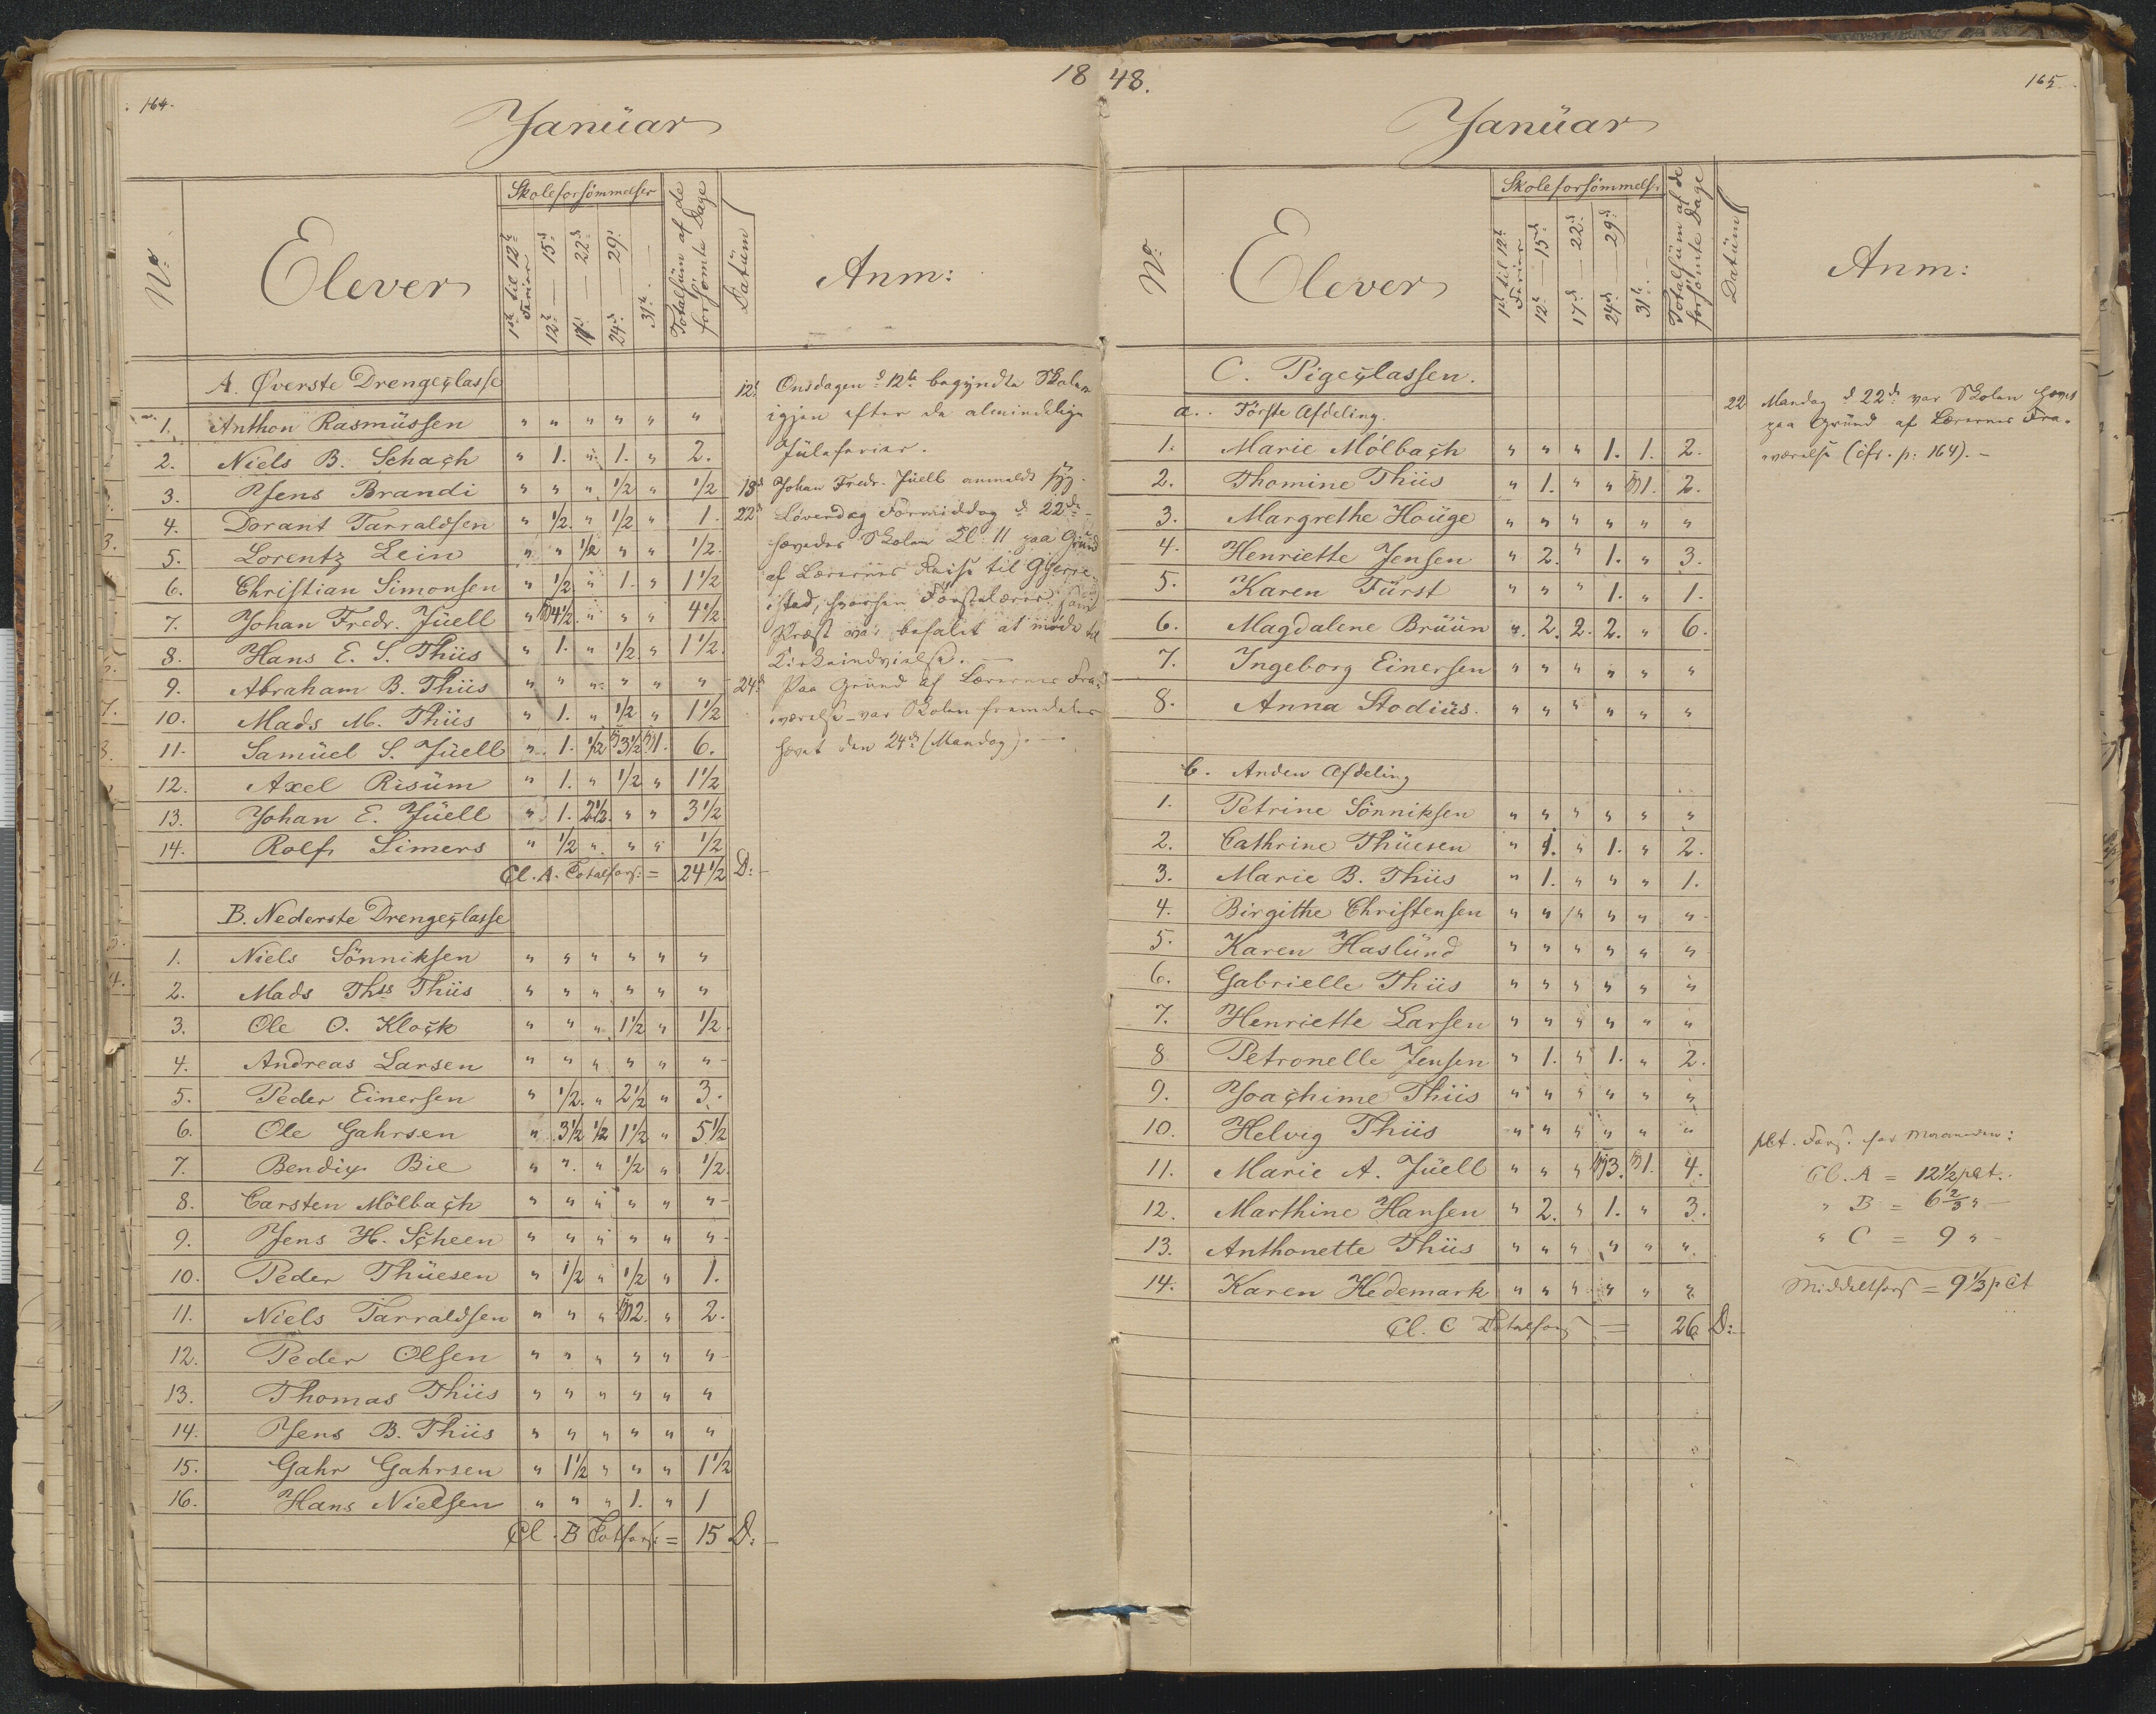 164.
1848.
165.
Janüar
No:
Elever
Skoleforsömmelser
1ste til 12te Ferier
12te — 15d:
17d: — 22d:
24d: — 29d:
31te. —
Totalsüm af de forsömte Dage
Datüm
Anm:
A. Øverste Drengeclasse
1. Anthon Rasmüssen " " " " " "
2. Niels B. Schach " 1. " 1. " 2.
3. Jens Brandi " " " 1/2 " 1/2
4. Dorant Tarraldsen " 1/2. " 1/2 " 1.
5. Lorentz Lein " " 1/2 " " 1/2.
6. Christian Simonsen " 1/2. " 1. " 1 1/2
7. Johan Fredr. Jüell " 4 1/2. " " " 4 1/2
8. Hans E. S. Thiis " 1. " 1/2. " 1 1/2.
9. Abraham B. Thiis " " " " " "
10. Mads M. Thiis " 1. " 1/2 " 1 1/2
11. Samüel S. Jüell " 1. 1/2 3 1/2 1. 6.
12. Axel Risüm " 1. " 1/2 " 1 1/2
13. Johan E. Jüell " 1. 2 1/2. " " 3 1/2
14. Rolf Simers " 1/2 " " " 1/2
Cl. A. Totalfors: = 24 1/2 D:
B. Nederste Drengeclasse
1. Niels Sönniksen " " " " " "
2. Mads Ths Thiis " " " " " "
3. Ole O. Klock " " " 1 1/2 " 1/2
4. Andreas Larsen " " " " " "
5. Peder Einersen " 1/2. " 2 1/2 " 3.
6. Ole Gahrsen " 3 1/2 1/2 1 1/2 " 5 1/2
7. Bendix Bie " " " 1/2 " 1/2.
8. Carsten Mölbach " " " " " "
9. Jens H. Scheen " " " " " "
10. Peder Thüesen " 1/2 " 1/2 " 1.
11. Niels Tarraldsen " " " 2. " 2.
12. Peder Olsen " " " " " "
13. Thomas Thiis " " " " " "
14. Jens B. Thiis " " " " " "
15. Gahr Gahrsen " 1 1/2 " " " 1 1/2
16. Hans Nielsen " " " 1. " 1
Cl. B Totfors: = 15 D:
12t Onsdagen d 12te begyndte Skolen
igjen efter de almindelige
Jüleferier.
13d Johan Fredr. Jüell anmeldt syg.
22d Løverdag Formiddag d 22de
hævedes Skolen Kl. 11 paa Gründ
af Lærernes Reise til Gjerre-
stad, hvorhen Førstelærer som
Præst var befalet at møde til
Kirkeindvielse.
24d Paa Gründ af Lærernes Fra-
værelse var Skolen fremdeles
hævet den 24de (Mandag).
Janüar
No:
Elever
Skoleforsömmels.
1ste til 12te Ferier
12te — 15d:
17d — 22d:
24d — 29d:
31te. —
Totalsüm af de forsömte Dage
Datüm
Anm:
C. Pigeclassen.
a. Förste Afdeling.
1. Marie Mölbach " " " 1. 1. 2.
2. Thomine Thiis " 1. " " 1. 2.
3. Margrethe Houge " " " " " "
4. Henriette Jensen " 2. " 1. " 3.
5. Karen Fürst " " " 1. " 1.
6. Magdalene Brüün " 2. 2. 2. " 6.
7. Ingeborg Einersen " " " " " "
8. Anna Stodiüs. " " " " " "
b. Anden Afdeling
1. Petrine Sönniksen " " " " " "
2. Cathrine Thüesen " 1. " 1. " 2.
3. Marie B. Thiis " 1. " " " 1.
4. Birgithe Christensen " " " " " "
5. Karen Haslünd " " " " " "
6. Gabrielle Thiis " " " " " "
7. Henriette Larsen " " " " " "
8 Petronelle Jensen " 1. " 1. " 2.
9. Joachime Thiis " " " " " "
10. Helvig Thiis " " " " " "
11. Marie A. Jüell " " " 3. 1. 4.
12. Marthine Hansen " 2. " 1. " 3.
13. Anthonette Thiis " " " " " "
14. Karen Hedemark " " " " " "
Cl. C Totalfors = 26 D:
22 Mandag d 22de var Skolen hævet
paa Gründ af Lærernes Fra-
værelse (cfr. p: 164). —
pCt. Fors. for Maaneden:
Cl. A = 12 1/2 pCt.
" B = 6 2/3 "
" C = 9 " -
Middelfors = 9 1/3 pCt